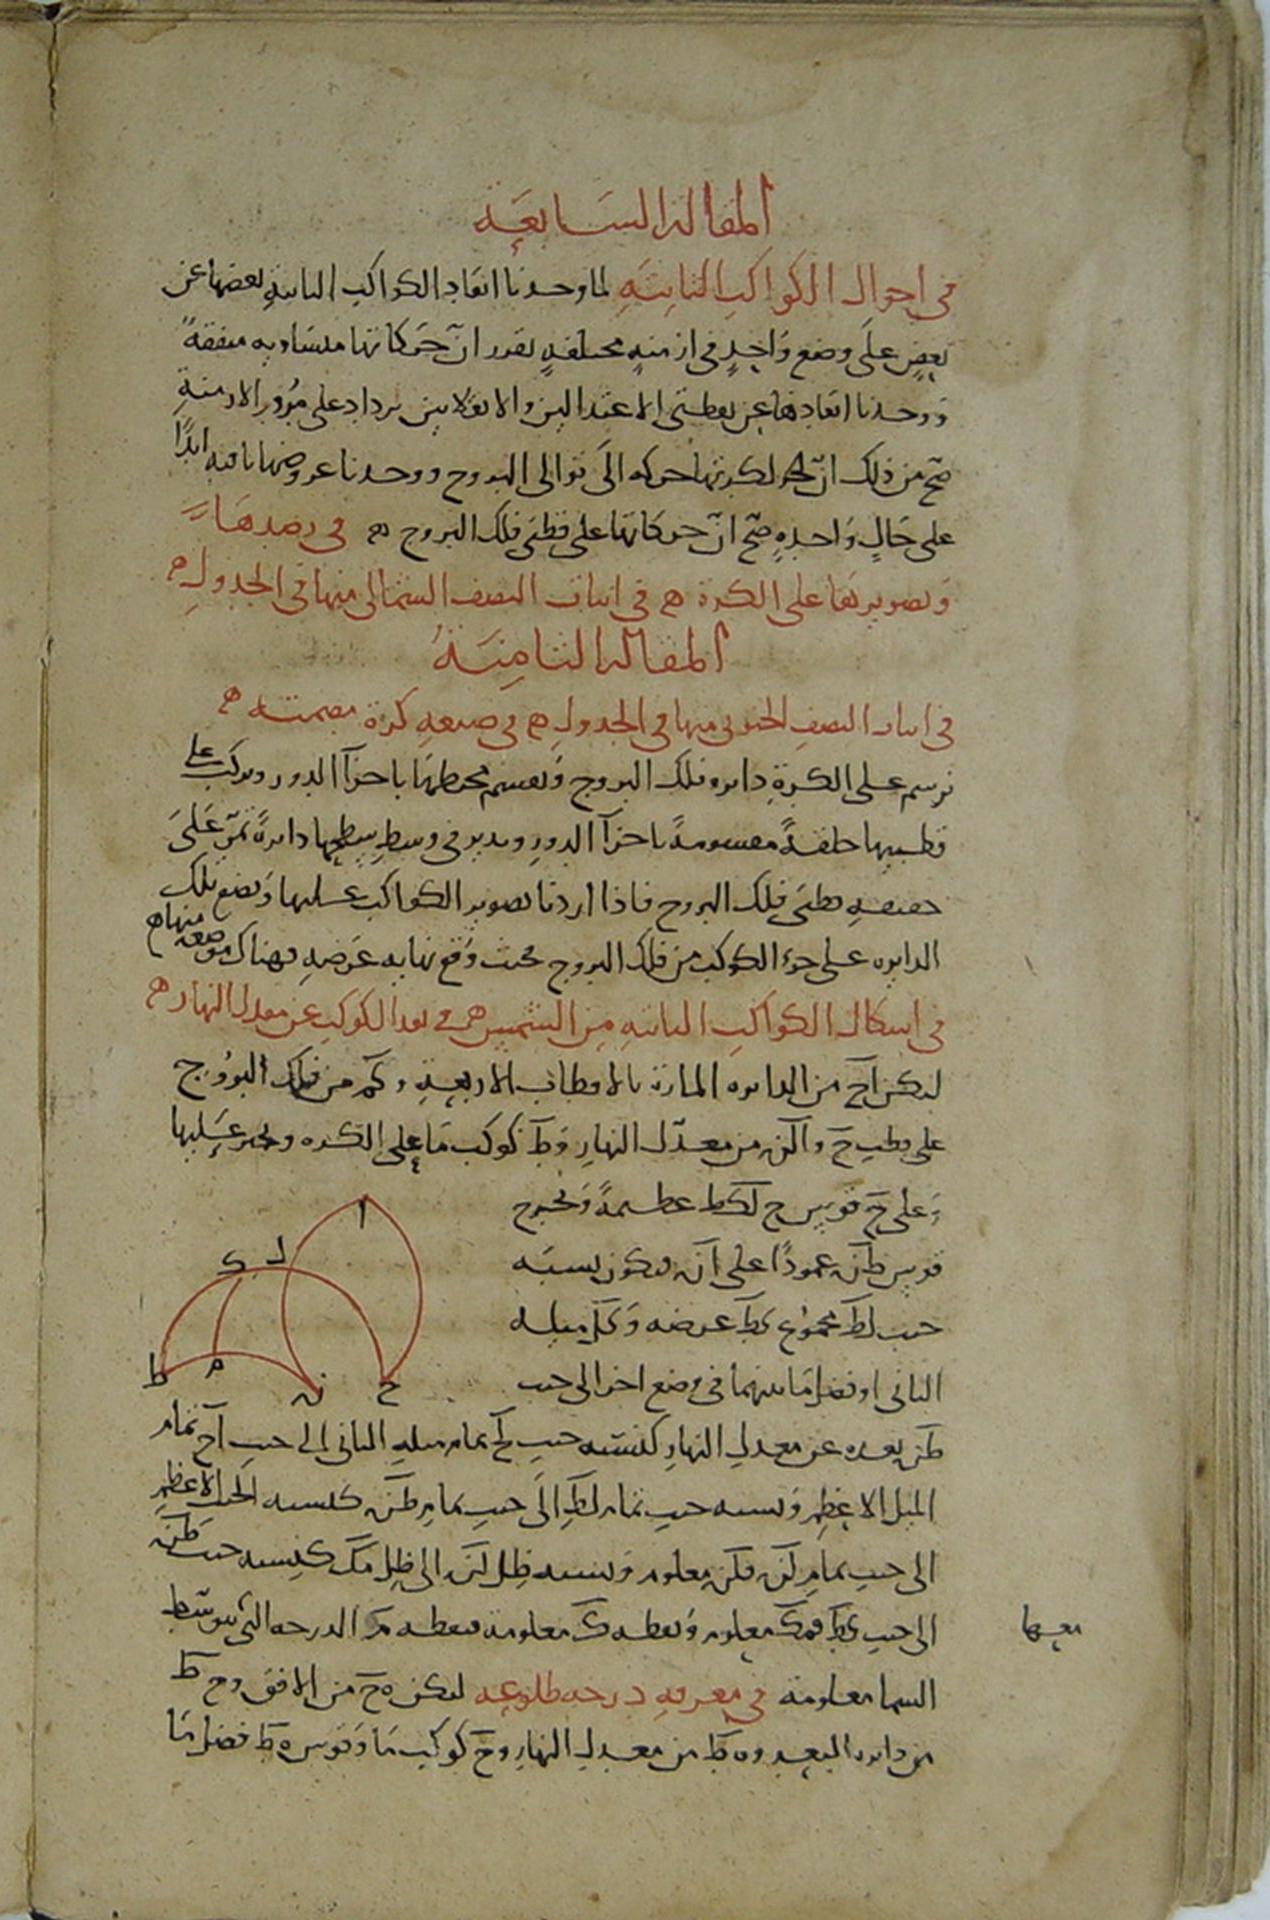 المقالة السابعة
في احوال الكواكب الثابتة لما وجدنا ابعاد الكواكب الثابتة بعضها عن
بعض على وضع واحد في ازمنة مختلفة تقرر ان حركاتها متساوية متفقة
ووجدنا ابعادها عن نقطتي الاعتدالين والانقلابين يزداد على مرور الازمنة
صح من ذلك ان لكرتها حركة الى توالى البروج ووجدنا عروضها باقية ابدا
على حال واحدة صح ان حركاتها على قطبي فلك البروج ه في رصدها
وتصويرها على الكرة ه في اثبات النصف الشمالى منها في الجدول ه
المقالة الثامنة
في اثبات النصف الجنوبي منها في الجدول ه في صنعة كرة مصمتة ه
نرسم على الكرة دايرة فلك البروج ونقسم محيطها باجزآ الدور ونركب على
قطبيها حلقة مقسومة باجزآ الدور وندير في وسط سطحها دايرة تمر على
حقيقة قطبي فلك البروج فاذا اردنا تصوير الكواكب عليها وضع تلك
الدايرة على جزء الكوكب من فلك البروج بحيث وقع نهاية عرضه فهناك موضعه منها ه
في اشكال الكواكب الثابتة من الشمس ه في بعد الكوكب عن معدل النهار ه
ليكن اح من الدايرة المارة بالاقطاب الاربعة وكم من فلك البروج
على قطب ح والن من معدل النهار وط كوكب ما على الكرة ونجيز عليها
وعلى ح قوس ح لكط عظيمة ونخرج
قوس طن عمودا على ان فيكون نسبة
جيب لط مجموع كط عرضه وكل ميله
الثاني او فضل ما بينهما في وضع اخر الى جيب
طن بعده عن معدل النهار كنسبة جيب لح تمام ميله الثاني الى جيب اح تمام
الميل الاعظم ونسبة جيب تمام لط الى جيب تمام طن كنسبة الجيب الاعظم
الى جيب تمام لن فلن معلوم ونسبة ظل لن الى ظل مك كنسبة جيب طن
الى جيب كط فمك معلوم ونقطة ك معلومة فنقطة م الدرجة التي يتوسط
معها
السما معلومة في معرفة درجة طلوعه ليكن ه ح من الافق وح ط
من دايرة البعد و ه ط من معدل النهار وح كوكب ما وقوس ه ط فضل ما